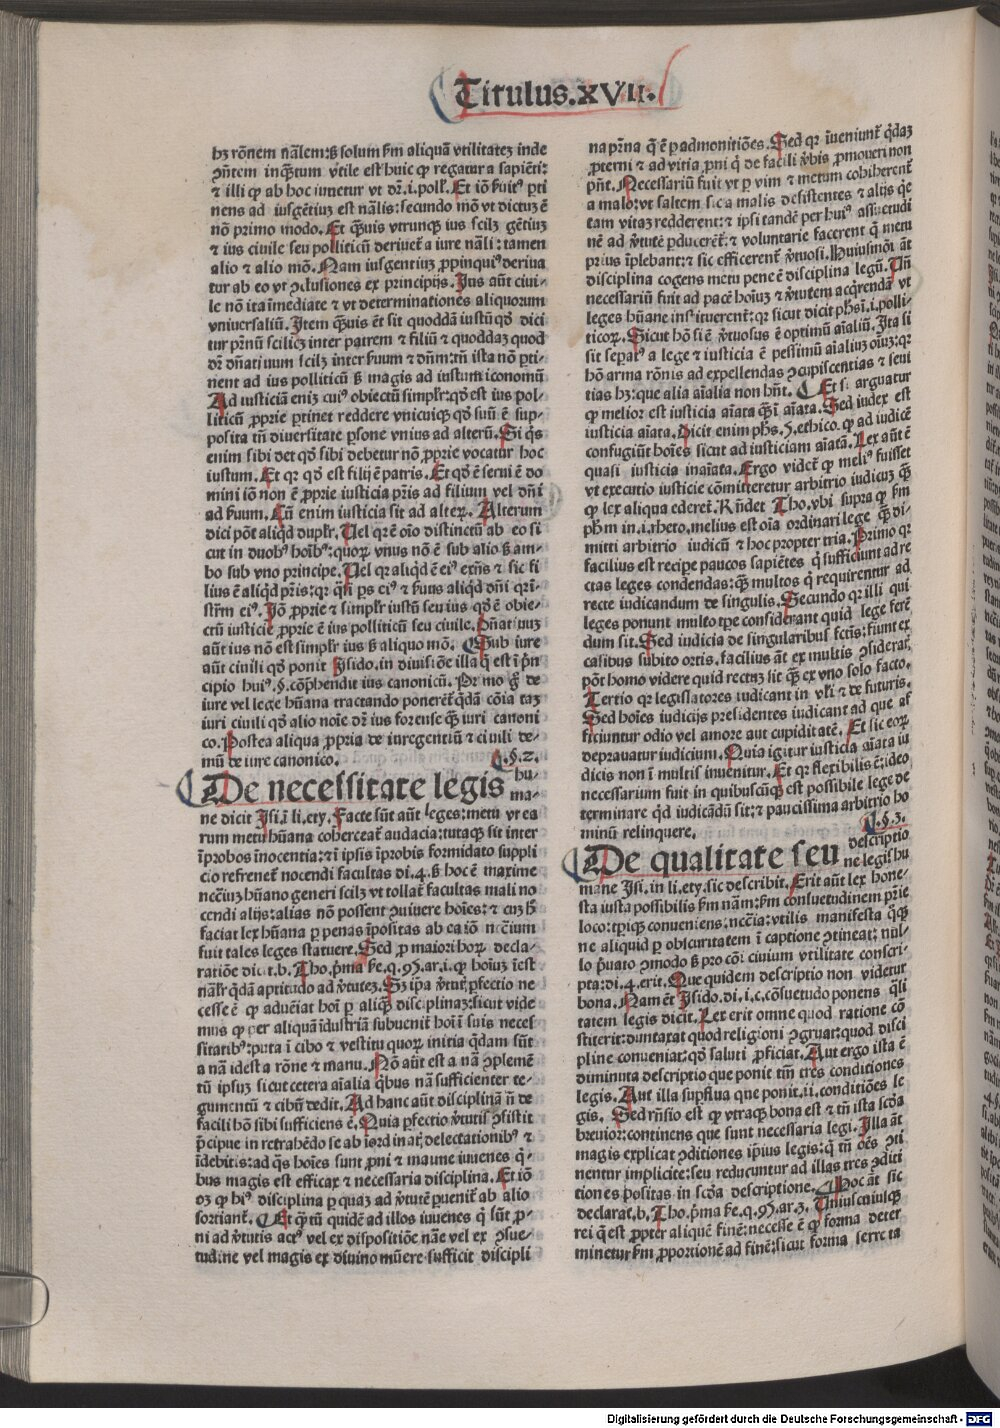 Titulus.XVII.
hꝫ rōnem nālem:ꝫ solum ẜm aliquā vtilitateꝫ inde
ꝯn̄tem inꝙ̄tum vtile est huic ꝙ regatur a sapiēti:
⁊ illi ꝙ ab hoc iuuetur vt dr̄.i.poll̕. Et iō ẜuitꝰ ꝑti
nens ad iusgētiuꝫ est nālis:secundo mō vt dictuꝫ ē
nō primo modo. Et ꝙ̄uis vtrunqꝫ ius scilꝫ gētiuꝫ
⁊ ius ciuile seu politicū deriuet̉ a iure nāli:tamen
alio ⁊ alio mō. Nam iusgentiuꝫ ꝓpinquiꝰ deriua
tur ab eo vt ꝯclusiones ex principijs. Ius aūt ciui-
le nō ita īmediate ⁊ vt determinationes aliquorum
vniuersaliū. Item ꝙ̄uis ēt sit quoddā iustū qd̕ dici
tur pr̄nū scilicꝫ inter patrem ⁊ filiū ⁊ quoddaꝫ quod
dr̄ dn̄atiuum scilꝫ inter ẜuum ⁊ dn̄m:tn̄ ista nō ꝑti-
nent ad ius polliticū ꝫ magis ad iustum iconomū
Ad iusticiā eniꝫ cuiꝰ obiectū simplr̄:qd̕ est ius pol-
liticū ꝓprie ꝑtinet reddere vnicuiqꝫ qd̕ suū ē sup-
posita tn̄ diuersitate ꝑsone vnius ad alterū. Si q̄s
enim sibi det qd̕ sibi debetur nō ꝓprie vocatur hoc
iustum. Et qꝛ qd̕ est filij ē patris. Et qd̕ ē serui ē do
mini iō non ē ꝓprie iusticia pr̄is ad filium vel dn̄i
ad ẜuum. Cū enim iusticia sit ad alteꝝ. Alterum
dici pōt aliqd duplr̄. Uel qꝛ ē oīo distinctū ab eo si
cut in duobꝰ hoībꝰ:quoꝝ vnus nō ē sub alio ꝫ am-
bo sub vno principe. Uel qꝛ aliqd̕ ē eiꝰ exn̄s ⁊ sic fi
lius ē aliqd̕ pr̄is:qꝛ q̄si ps eiꝰ ⁊ ẜuus aliqd̕ dn̄i qꝛ ī-
str̄m eiꝰ. Iō ꝓprie ⁊ simplr̄ iustū seu ius qd̕ ē obie-
ctū iusticie ꝓprie ē ius polliticū seu ciuile. Dn̄atiuuꝫ
aūt ius nō est simplr̄ ius ꝫ aliquo mō. Sub iure
aūt ciuili qd̕ ponit Isido.in diuisiōe illa q̄ est ī pn̄
cipio huiꝰ.§.cōp̄hendit ius canonicū. Primo g̊ de
iure vel lege hūana tractando ponerēt̉ q̄dā cōia taꝫ
iuri ciuili qd̕ alio noīe dr̄ ius forense ꝙ̄ iuri canoni
co. Postea aliqua ꝓpria de iuregentiū ⁊ ciuili de-
mū de iure canonico. .§.2.
De necessitate legis hu-
ma-
ne dicit Isi.ī li.ety. Facte sūt aūt leges:metu vt ea
rum metu hūana coherceat̉ audacia:tutaqꝫ sit inter
īprobos īnocentia:⁊ ī ipsis īprobis formidato suppli
cio refrenet̉ nocendi facultas di.4.ꝫ hoc ē maxime
necc̄ius hūano generi scilꝫ vt tollat̉ facultas mali no
cendi alijs:alias nō possent ꝯuiuere hoīes:⁊ cuꝫ h̄
faciat lex hūana ꝑ penas īpositas ab ea iō necc̄ium
fuit tales leges statuere. Sed ꝓ maiori hoꝝ decla-
ratiōe dicit.b.Tho.pm̄a ẜe.q.95.ar.i.ꝙ hoīuꝫ īest
nālr̄ q̄dā aptitudo ad v̄tuteꝫ. Sꝫ ip̄a v̄tuꝭ ꝑfectio ne
cesse ē ꝙ adueniat hoī ꝑ aliq̄ disciplinaꝫ:sicut vide
mus ꝙ per aliquā īdustriā subuenit̉ hoī ī suis neces
sitatibꝰ:puta ī cibo ⁊ vestitu quoꝝ initia q̄dam sūt
a nā idest a rōne ⁊ manu. Nō aūt est a nā ꝯplemē
tū ipsuꝫ sicut cetera aīalia q̄bus nā sufficienter te-
gumentū ⁊ cibū dedit. Ad hanc aūt disciplinā n̄ de
facili hō sibi sufficiens ē. Quia ꝑfectio v̄tutis ꝯsistit
p̄cipue in retrahēdo se ab īordinatis delectationibꝰ ⁊
īdebitis:ad q̄s hoīes sunt ꝓni ⁊ maxīe iuuenes q̄-
bus magis est efficax ⁊ necessaria disciplina. Et iō
oꝫ ꝙ hīꝰ disciplina ꝑ quaꝫ ad v̄tutē ꝑuenit̉ ab alio
sortiant̉. Et q̄tū quidē ad illos iuuenes q̄ sūt ꝓ-
ni ad v̄tutis actꝰ vel ex dispositiōe nāe vel ex ꝯsue-
tudine vel magis ex diuino mūere sufficit discipli
na pr̄na q̄ ē ꝑ admonitiōes. Sed qꝛ īueniunt̉ q̄daꝫ
ꝓterui ⁊ ad vitia ꝓni q̄ de facili v̄bis ꝓmoueri non
pn̄t. Necessariū fuit vt ꝑ vim ⁊ metum cohiberent̉
a malo:vt saltem sic a malis desistentes ⁊ alijs q̄e
tam vitaꝫ redderent:⁊ ipsi tandē per huiꝰ assuetudi
nē ad v̄tutē ꝑducerēt̉:⁊ voluntarie facerent q̄ metu
prius īplebant:⁊ sic efficerent̉ v̄tuosi. Huiusmōi āt
disciplina cogens metu pene ē disciplina legū. Un̄
necessariū fuit ad pacē hoīuꝫ ⁊ v̄tutem acq̄rendā vt
leges hūane instituerent̉:qꝛ sicut dicit phs̄.i.polli-
ticoꝝ. Sicut hō si ē v̄tuosus ē optimū aīaliū. Ita si
sit sepatꝰ a lege ⁊ iusticia ē pessimū aīaliuꝫ oīuꝫ:qꝛ
hō arma rōnis ad expellendas ꝯcupiscentias ⁊ seui
tias hꝫ:que alia aīalia non hn̄t. Et si arguatur
ꝙ melior est iusticia aīata ꝙ̄ ī aīata. Sed iudex est
iusticia aīata. Dicit enim phs̄.5.ethico.ꝙ ad iudicē
confugiūt hoīes sicut ad iusticiam aīatā. Lex aūt ē
quasi iusticia inaīata. Ergo videt̉ ꝙ meliꝰ fuisset
vt executio iusticie cōmitteretur arbitrio iudicuꝫ ꝙ̄
ꝙ lex aliqua ederet̉. Rn̄det Tho.vbi supra ꝙ ẜm
phm̄ in.i.rheto.melius est oīa ordinari lege ꝙ̄ di-
mitti arbitrio iudicū ⁊ hoc propter tria. Primo qꝛ
facilius est recipe paucos sapiētes q̄ sufficiunt ad re
ctas leges condendas:ꝙ̄ multos q̄ requirentur ad
recte iudicandum de singulis. Secundo qꝛ illi qui
leges ponunt multo tꝑe considerant quid lege ferē
dum sit. Sed iudicia de singularibus fctīs:fiunt ex
casibus subito ortis.facilius āt ex multis ꝯsiderat̉
pōt homo videre quid rectuꝫ sit ꝙ̄ ex vno solo facto.
Tertio qꝛ legislatores iudicant in vl̕i ⁊ de futuris.
Sed hoīes iudicijs presidentes iudicant ad que af
ficiuntur odio vel amore aut cupiditatē. Et sic eoꝝ
deprauatur iudicium. Quia igitur iusticia aīata iu
dicis non ī multis inuenitur. Et qꝛ flexibilis ē:ideo
necessarium fuit in quibuscūqꝫ est possibile lege de
terminare q̄d iudicādū sit:⁊ paucissima arbitrio ho
minū relinquere.
.§.3.
De qualitate seu descriptio
ne legis hu
mane Isi.in li.ety.sic describit. Erit aūt lex hone-
sta iusta possibilis ẜm nām:ẜm consuetudinem pr̄ie
loco:tp̄iqꝫ conueniens.necc̄ia:vtilis manifesta q̄qꝫ
ne aliquid ꝑ obscuritatem ī captione ꝯtineat:nul-
lo p̄uato ꝯmodo ꝫ pro cōi ciuium vtilitate conscri-
pta:di.4.erit. Que quidem descriptio non videtur
bona. Nam ēt Isido.di.i.c.cōsuetudo ponens q̄li
tatem legis dicit. Lex erit omne quod ratione cō
stiterit:duntaxat quod religioni ꝯgruat:quod disci
pline conueniat:qd̕ saluti ꝓficiat. Aut ergo ista ē
diminuta descriptio que ponit tm̄ tres conditiones
legis. Aut illa supflua que ponit.ii.conditiōes le
gis. Sed rn̄sio est ꝙ vtraqꝫ bona est ⁊ tn̄ ista scd̄a
breuior:continens que sunt necessaria legi. Illa āt
magis explicat ꝯditiones ip̄ius legis:q̄ tn̄ oēs ꝯti
nentur implicite:seu reducuntur ad illas tres ꝯditi
tiones positas in scd̄a descriptione. Hoc āt sic
declarat.b.Tho.pm̄a ẜe.q.95.ar.3. Uniuscuiusqꝫ
rei q̄ est ꝓpter aliquē finē:necesse ē ꝙ forma deter
minetur ẜm ꝓportionē ad finē:sicut forma serre ta
Digitalisierung gefördert durch die Deutsche Forschungsgemeinschaft - DFG